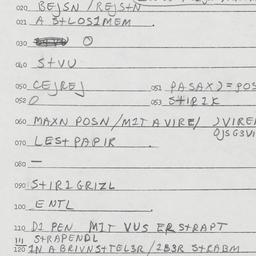 020 BEJSN / REJS+N
021 A S+LOS1MEM
030 O
040 S+VU
050 CEJREJ 051 PASAX)=POS
052 O 053 S+IPIK
060 MAXN POSN / M2T A VIRE/ )VIREN
OJSG3VI
070 LES+ PAPIR
080 —
090 S+IRI GRIZL
100 ENTL
110 D1 PEN M1T VUS ER S+RAPT
111 S+RAPENDL
120 IN A BRIVNS+TEL3R / 2B3R S+RABM